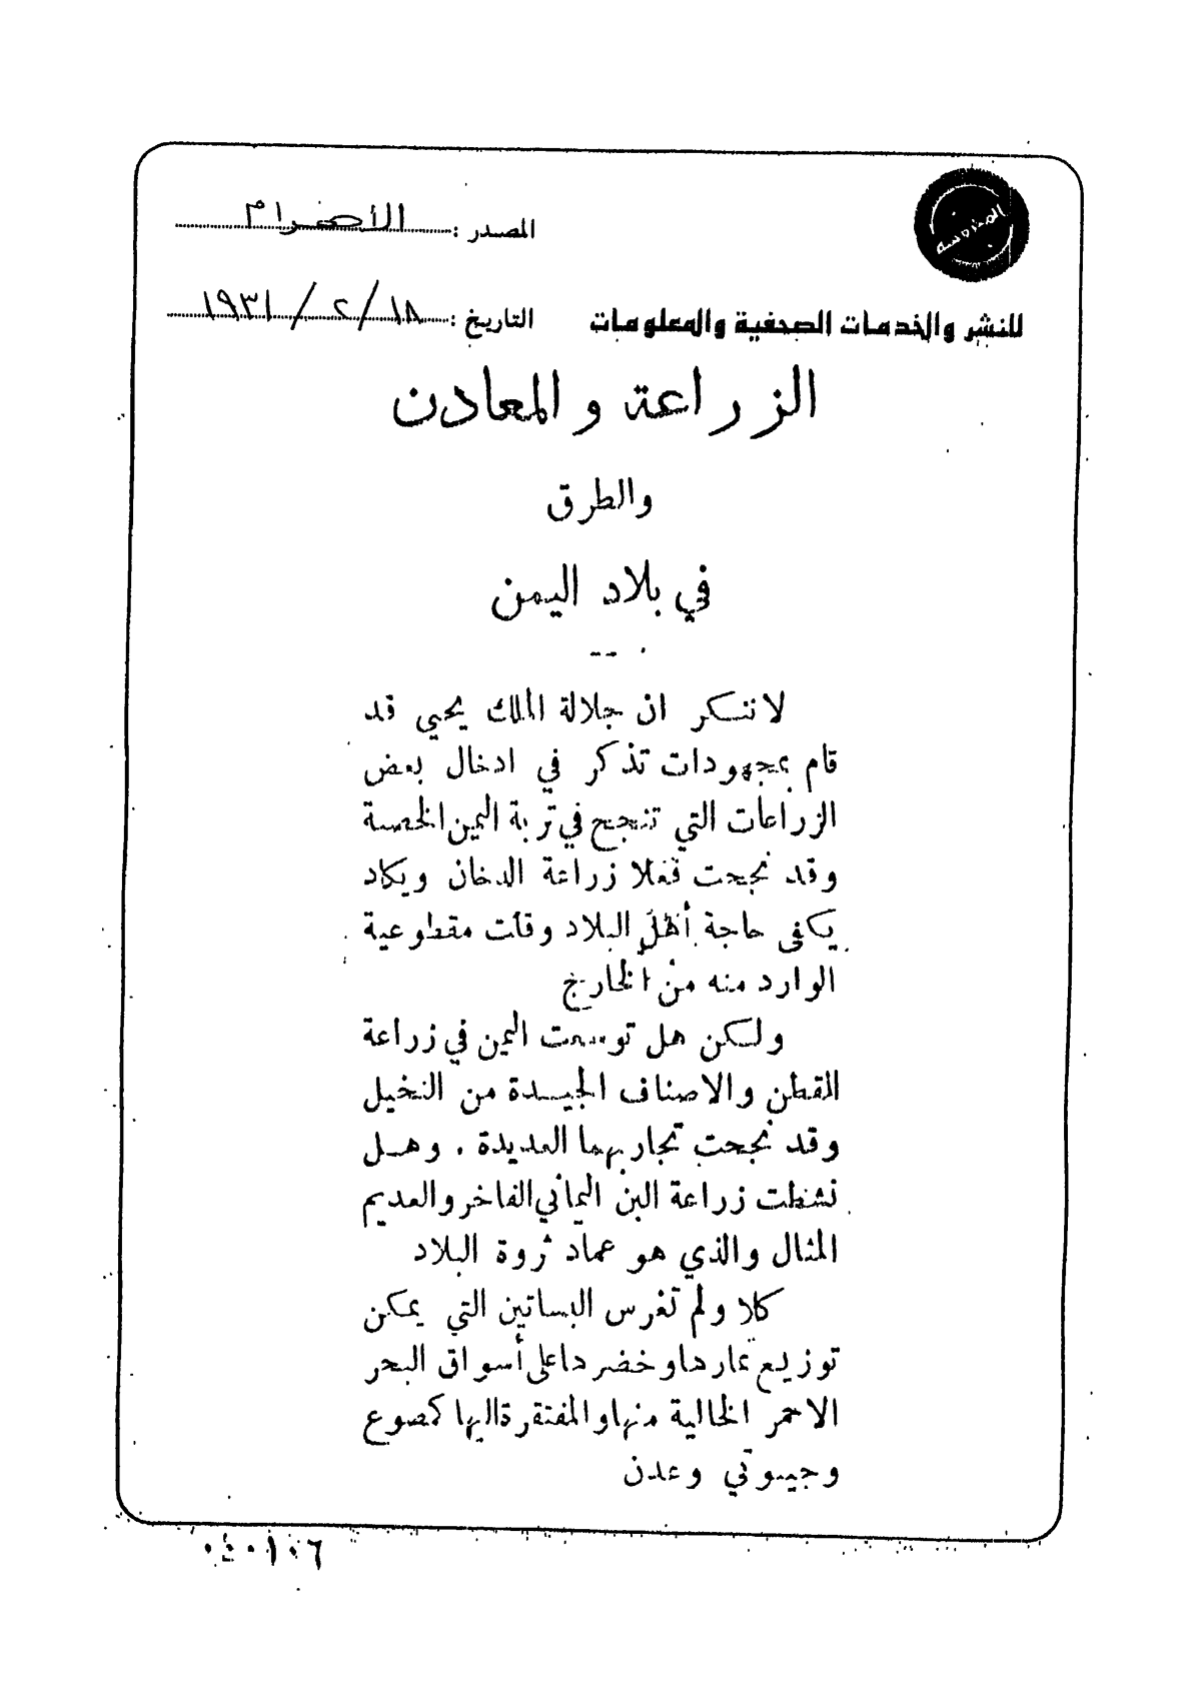 المحروسة
المصدر : الأهرام
للنشر والخدمات الصحفية والمعلومات
التاريخ : ١٨/ ٢/ ١٩٣١
الزراعة والمعادن
والطرق
في بلاد اليمن
لا ننكر ان جلالة الملك يحيي قد
قام بمجهودات تذكر في ادخال بعض
الزراعات التي تنجح في تربة اليمن الخصبة
وقد نجحت فعلا زراعة الدخان ويكاد
يكفى حاجة أهل البلاد وقلت مقطوعية
الوارد منه من الخارج
ولكن هل توسعت اليمن في زراعة
القطن والاصناف الجيدة من النخيل
وقد نجحت تجاربهما العديدة . وهل
نشطت زراعة البن اليماني الفاخر والعديم
المثال والذي هو عماد ثروة البلاد
كلا ولم تغرس البساتين التي يمكن
توزيع ثمارها وخضرها على أسواق البحر
الاحمر الخالية منها والمفتقرة اليها كمصوع
وجيبوتي وعدن